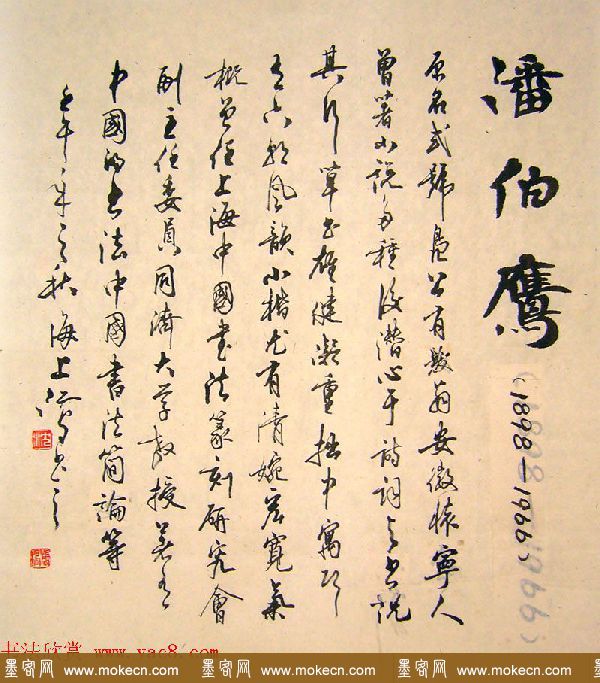 潘伯鷹
(1898—1966)
原名式號鳧公有髮翁安徽懷寧人
曾著小説多種後潛心于詩詞與書
其行草書雄健凝重拙中寓巧
有六朝風韻小楷尤有清婉寬氣
概曾任上海中國書法篆刻研究會
副主任委員同濟大学教授著有
中國的書法中國書法简論等
壬午年之秋海上書之
书法欣赏 www.yac8.com
墨客网 www.mokecn.com 墨客网 www.mokecn.com 墨客网 www.mokecn.com